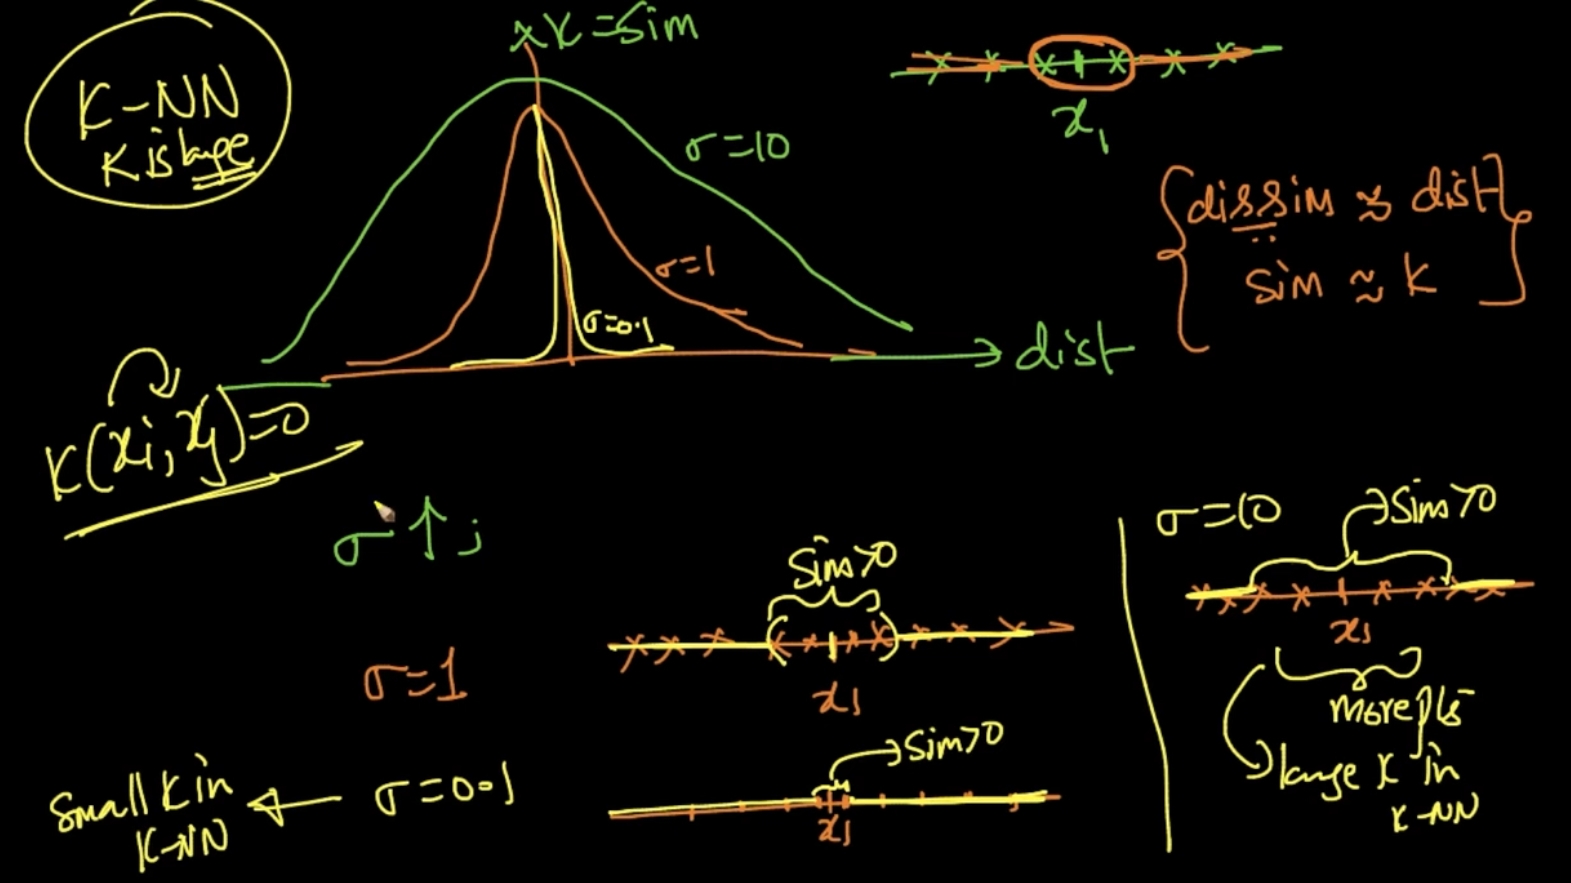 K-NN
K is large
K=Sim
σ=10
σ=1
σ=0.1
dist
x₁
dissim ≈ dist
sim ≈ K
K(xi, xj)=0
σ↑;
σ=1
Sim>0
x₁
Small K in
K-NN
σ=0.1
Sim>0
x₁
σ=10
Sim>0
x₁
more pts
large K in
K-NN